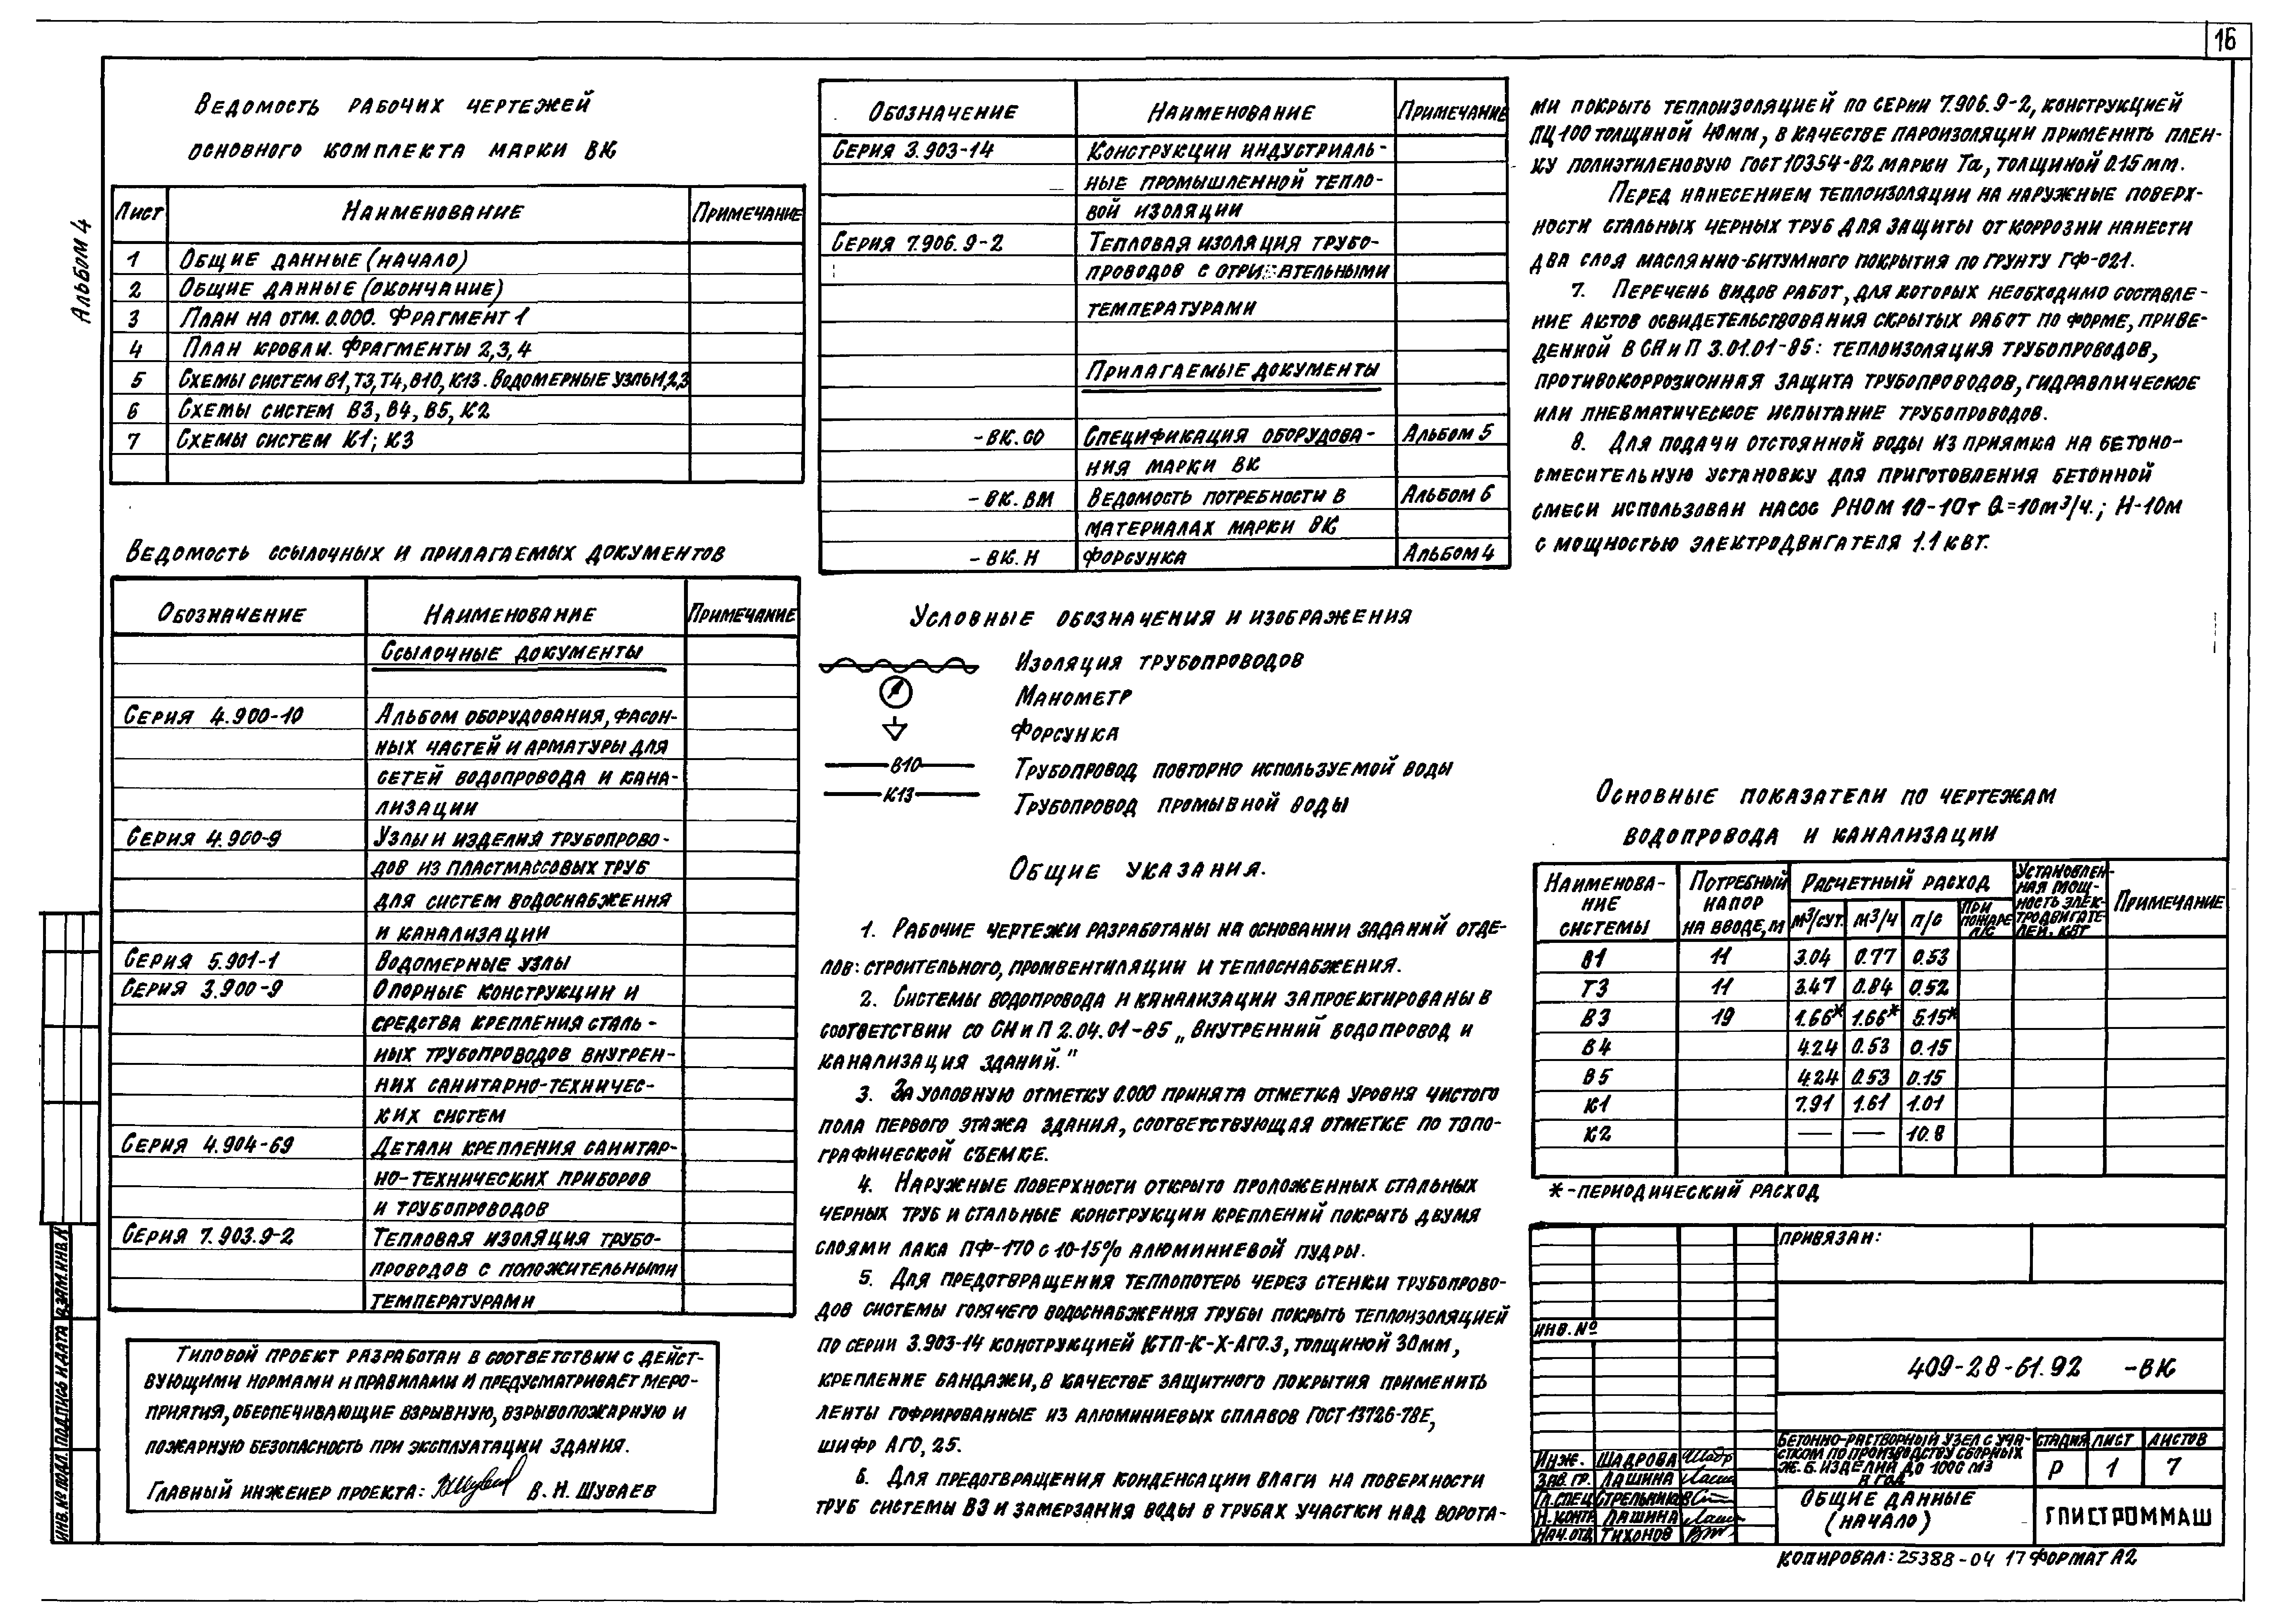 16
Альбом 4
Ведомость рабочих чертежей
основного комплекта марки ВК
Лист Наименование Примечание
1 Общие данные (начало)
2 Общие данные (окончание)
3 План на отм. 0.000. Фрагмент 1
4 План кровли. Фрагменты 2,3,4
5 Схемы систем В1,Т3,Т4,В10,К13. Водомерные узлы 1,2,3
6 Схемы систем В3, В4, В5, К2
7 Схемы систем К1; К3
Ведомость ссылочных и прилагаемых документов
Обозначение Наименование Примечание
Ссылочные документы
Серия 4.900-10 Альбом оборудования, фасон-
ных частей и арматуры для
сетей водопровода и кана-
лизации
Серия 4.900-9 Узлы и изделия трубопрово-
дов из пластмассовых труб
для систем водоснабжения
и канализации
Серия 5.901-1 Водомерные узлы
Серия 3.900-9 Опорные конструкции и
средства крепления сталь-
ных трубопроводов внутрен-
них санитарно-техничес-
ких систем
Серия 4.904-69 Детали крепления санитар-
но-технических приборов
и трубопроводов
Серия 7.903.9-2 Тепловая изоляция трубо-
проводов с положительными
температурами
Типовой проект разработан в соответствии с дейст-
вующими нормами и правилами и предусматривает меро-
приятия, обеспечивающие взрывную, взрывопожарную и
пожарную безопасность при эксплуатации здания.
Главный инженер проекта: В. Н. Шуваев
Инв. № подл. Подпись и дата Взам. инв. №
Обозначение Наименование Примечание
Серия 3.903-14 Конструкции индустриаль-
ные промышленной тепло-
вой изоляции
Серия 7.906.9-2 Тепловая изоляция трубо-
проводов с отрицательными
температурами
Прилагаемые документы
-ВК.СО Спецификация оборудова- Альбом 5
ния марки ВК
-ВК.ВМ Ведомость потребности в Альбом 6
материалах марки ВК
-ВК.Н Форсунка Альбом 4
Условные обозначения и изображения
Изоляция трубопроводов
Манометр
Форсунка
В10 Трубопровод повторно используемой воды
К13 Трубопровод промывной воды
Общие указания.
1. Рабочие чертежи разработаны на основании заданий отде-
лов: строительного, промвентиляции и теплоснабжения.
2. Системы водопровода и канализации запроектированы в
соответствии со СНиП 2.04.01-85 „Внутренний водопровод и
канализация зданий."
3. За условную отметку 0.000 принята отметка уровня чистого
пола первого этажа здания, соответствующая отметке по топо-
графической съемке.
4. Наружные поверхности открыто проложенных стальных
черных труб и стальные конструкции креплений покрыть двумя
слоями лака ПФ-170 с 10-15% алюминиевой пудры.
5. Для предотвращения теплопотерь через стенки трубопрово-
дов системы горячего водоснабжения трубы покрыть теплоизоляцией
по серии 3.903-14 конструкцией КТП-К-Х-АГ0.3, толщиной 30мм,
крепление бандажи, в качестве защитного покрытия применить
ленты гофрированные из алюминиевых сплавов ГОСТ 13726-78Е,
шифр АГ0,25.
6. Для предотвращения конденсации влаги на поверхности
труб системы В3 и замерзания воды в трубах участки над ворота-
ми покрыть теплоизоляцией по серии 7.906.9-2, конструкцией
ПЦ100 толщиной 40мм, в качестве пароизоляции применить плен-
ку полиэтиленовую ГОСТ 10354-82 марки Та, толщиной 0.15мм.
Перед нанесением теплоизоляции на наружные поверх-
ности стальных черных труб для защиты от коррозии нанести
два слоя маслянно-битумного покрытия по грунту ГФ-021.
7. Перечень видов работ, для которых необходимо составле-
ние актов освидетельствования скрытых работ по форме, приве-
денной в СНиП 3.01.01-85: теплоизоляция трубопроводов,
противокоррозионная защита трубопроводов, гидравлическое
или пневматическое испытание трубопроводов.
8. Для подачи отстоянной воды из приямка на бетоно-
смесительную установку для приготовления бетонной
смеси использован насос РНОМ 10-10т Q=10м³/ч.; Н-10м
с мощностью электродвигателя 1.1 квт.
Основные показатели по чертежам
водопровода и канализации
Наименова-ние системы Потребный напор на вводе, м Расчетный расход Установлен-ная мощ-ность элек-тродвигате-лей, квт Примечание
м³/сут. м³/ч л/с При пожаре л/с
В1 11 3.04 0.77 0.53
Т3 11 3.47 0.84 0.52
В3 19 1.66* 1.66* 5.15*
В4 4.24 0.53 0.15
В5 4.24 0.53 0.15
К1 7.91 1.61 1.01
К2 — — 10.8
*-периодический расход
Привязан:
Инв. №
409-28-61.92 -ВК
Инж. Шадрова
Зав. гр. Лашина
Гл. спец Стрельников
Н. контр Лашина
Нач. отд Тихонов
Бетонно-растворный узел с уча-
стком по производству сборных
ж.б. изделий до 1000 м3
в год
Стадия Лист Листов
Р 1 7
Общие данные
(начало)
ГПИСТРОММАШ
Копировал: 25388-04 17 Формат А2